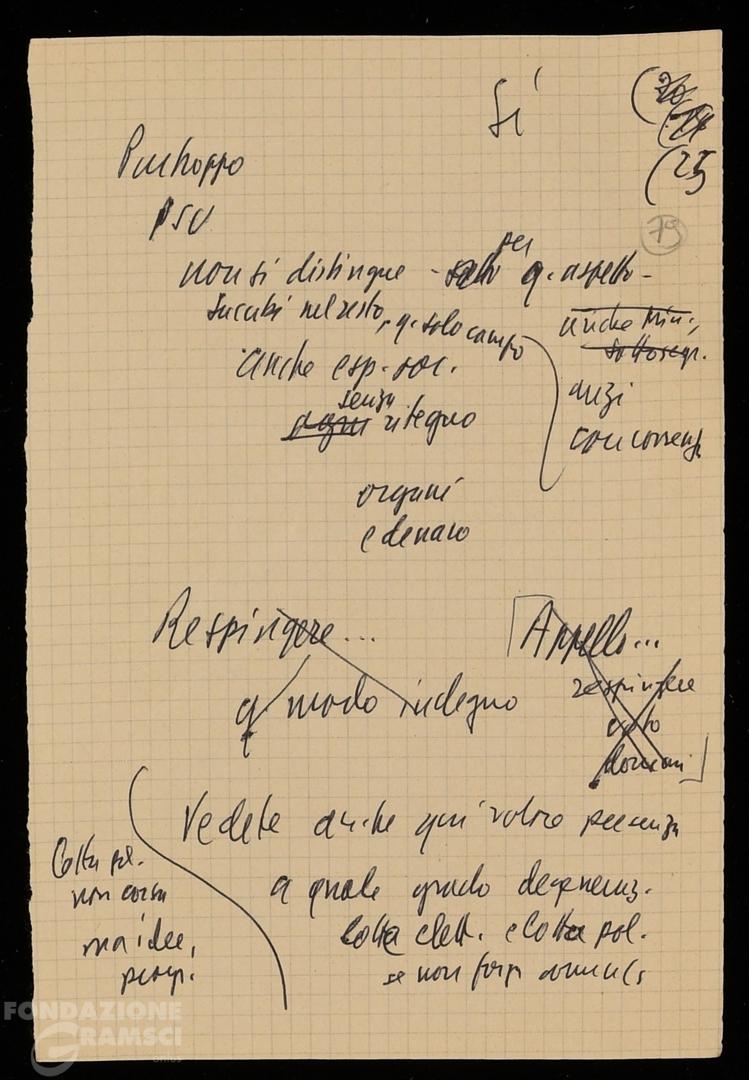 Sí
(25
79
Purtroppo
PSU
non si distingue - salvo per q. aspetto -
Succubi nel resto, q. solo campo
anche Min.,
sottosegr.
anche esp. soc.
anzi
senza
ogni ritegno
concorrenz
organi
e denaro
Respingere...
q modo indegno
Appello...
respingere
voto
domani
Vedete anche qui vostra presenza
a quale grado degeneraz.
lotta elett. e lotta pol.
se non forza comunis
Lotta pol.
non corsa
ma idee,
progr.
FONDAZIONE
GRAMSCI
onlus